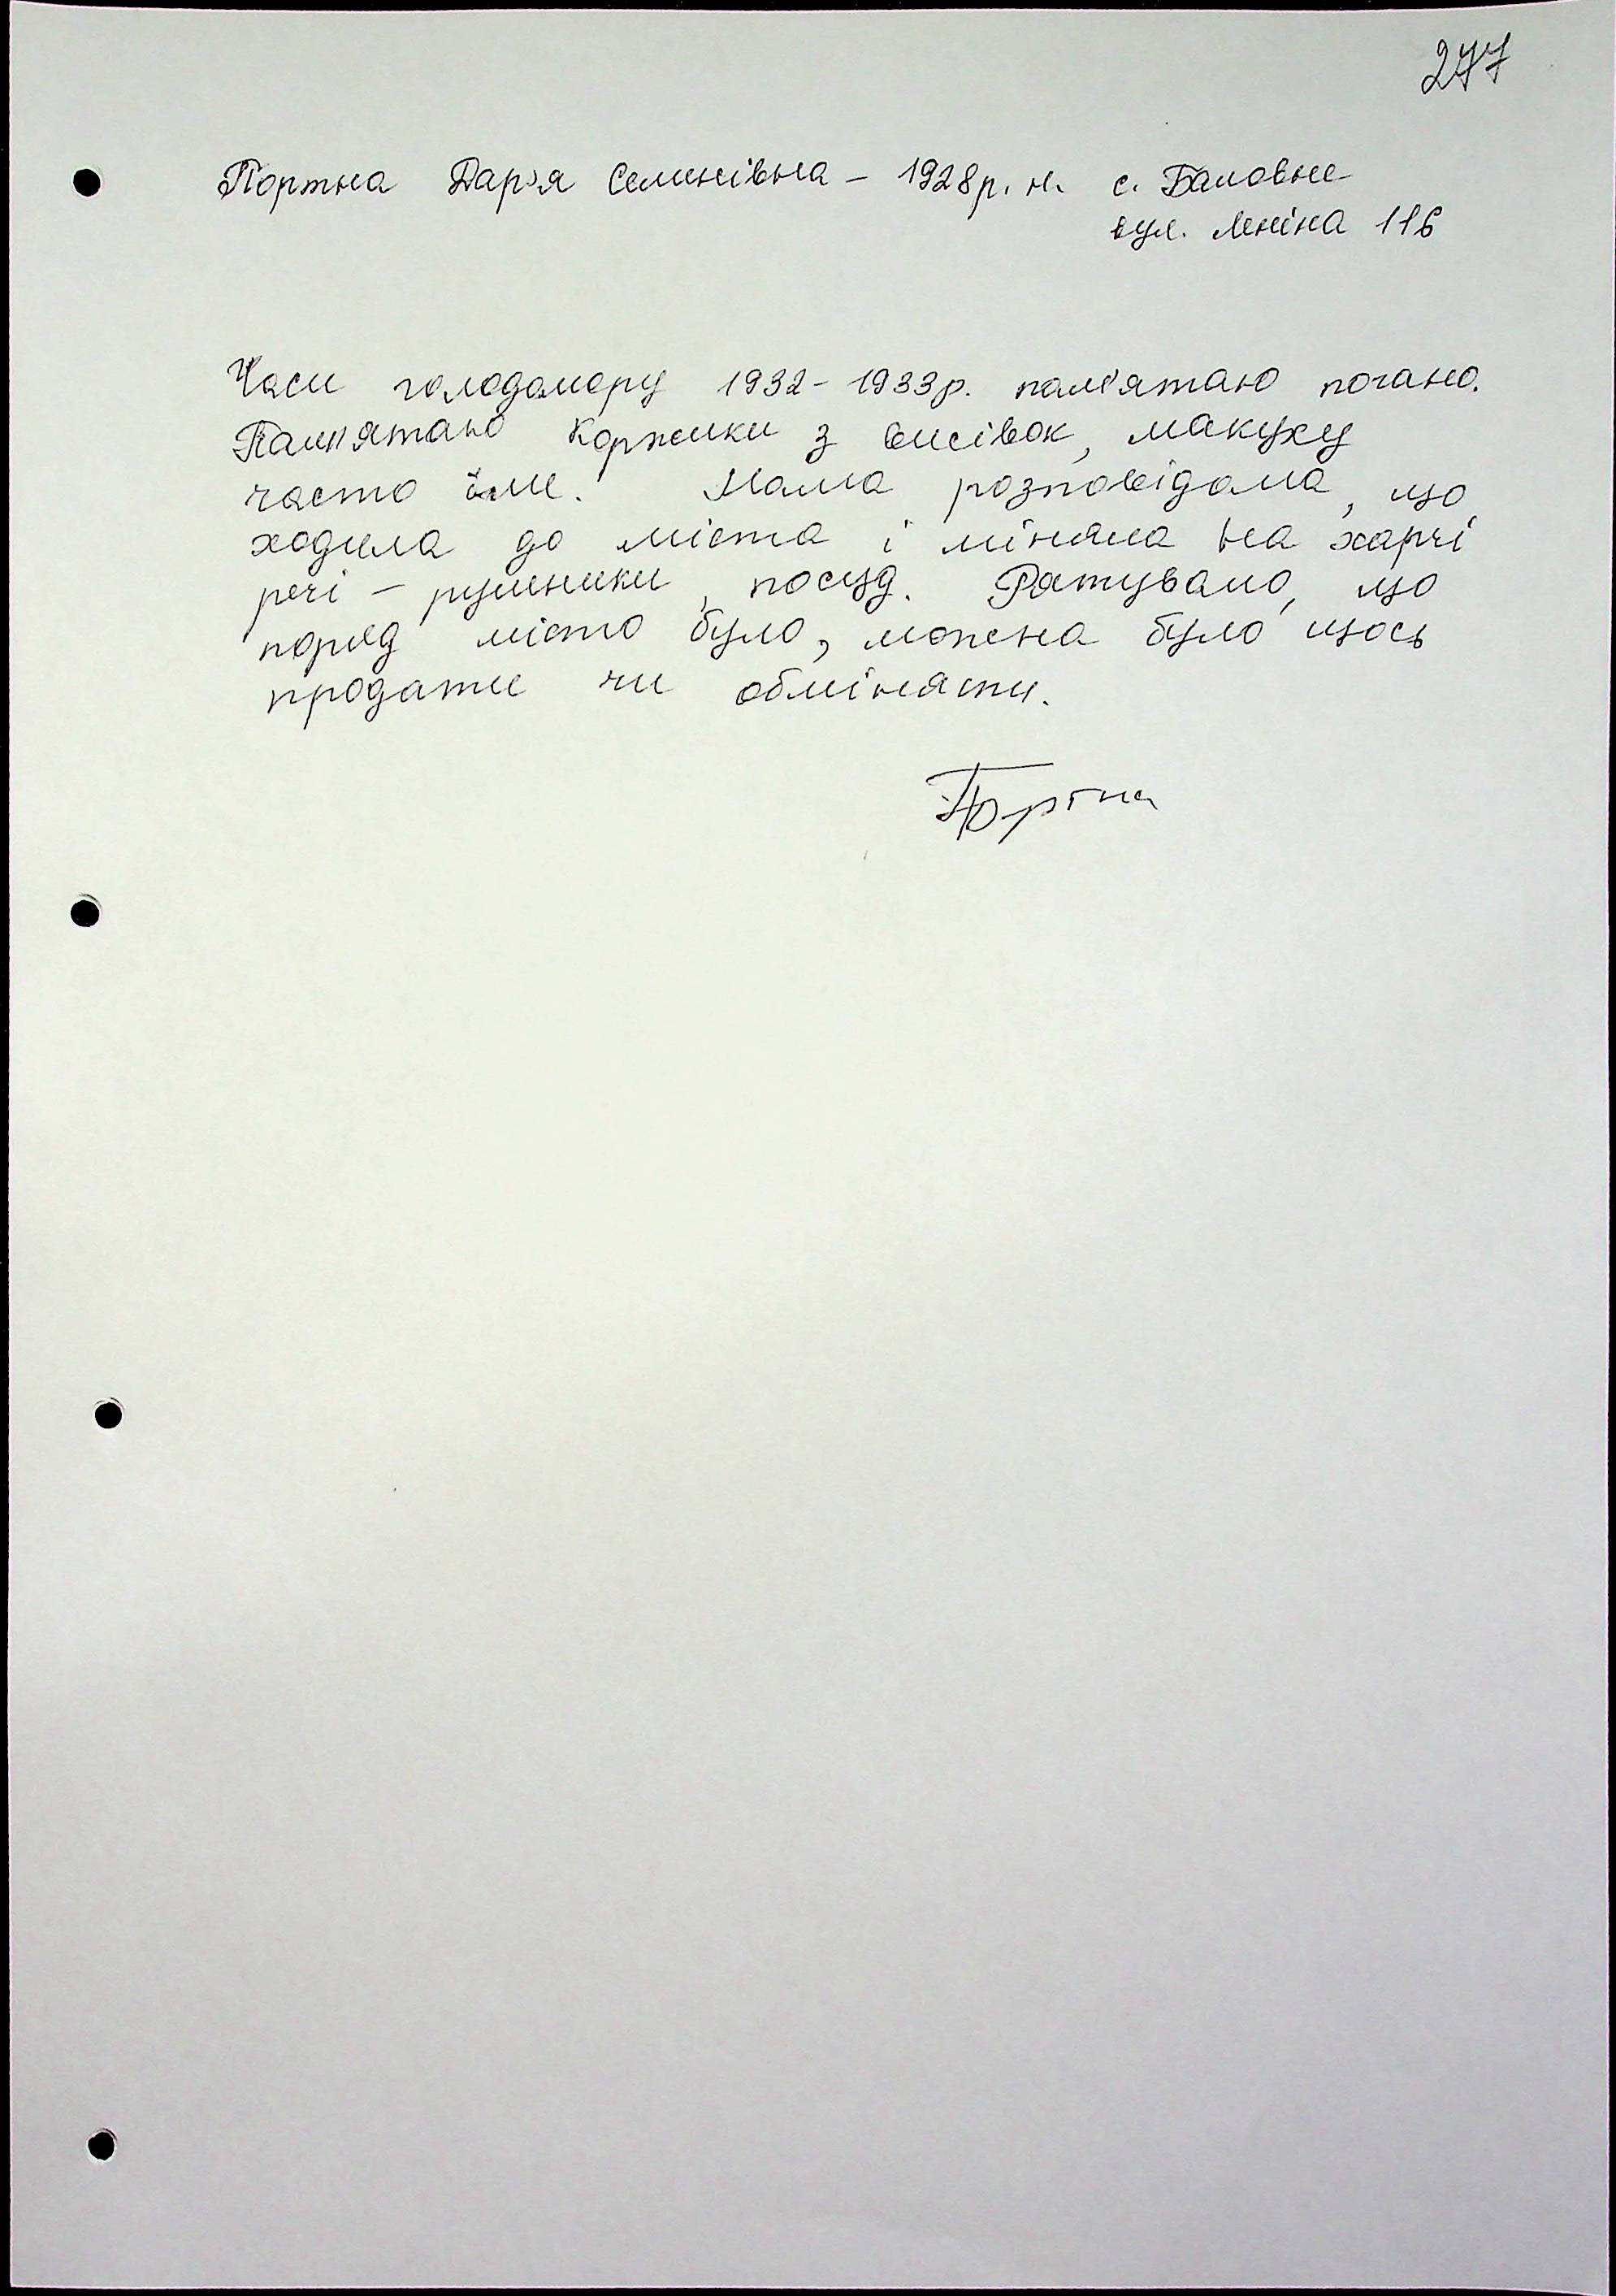 277
Портна Дар'я Семенівна - 1928 р. н. с. Баловне
вул. Леніна 116
Часи голодомору 1932-1933р. пам'ятаю погано.
Пам'ятаю коржики з висівок, макуху
часто їли. Мама розповідала, що
ходила до міста і міняла на харчі
речі - рушники, посуд. Рятувало, що
поряд місто було, можна було щось
продати чи обміняти.
Портна